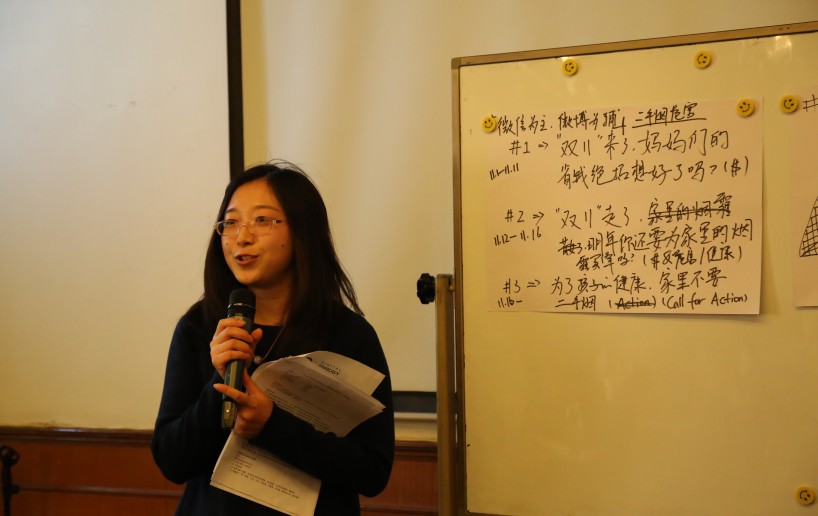 微信为主，微博为辅，二手烟危害
#1 => "双11"来了，妈妈们的
11.1-11.11
省钱绝招想好了吗？(#)
#2 => "双11"走了，家里的烟霾
11.12-11.16
散了，明年你还要为家里的烟
买单吗？(#及危害/健康)
#3 => 为了孩子的健康，家里不要
11.16-
二手烟 (Action) (Call for Action)
#